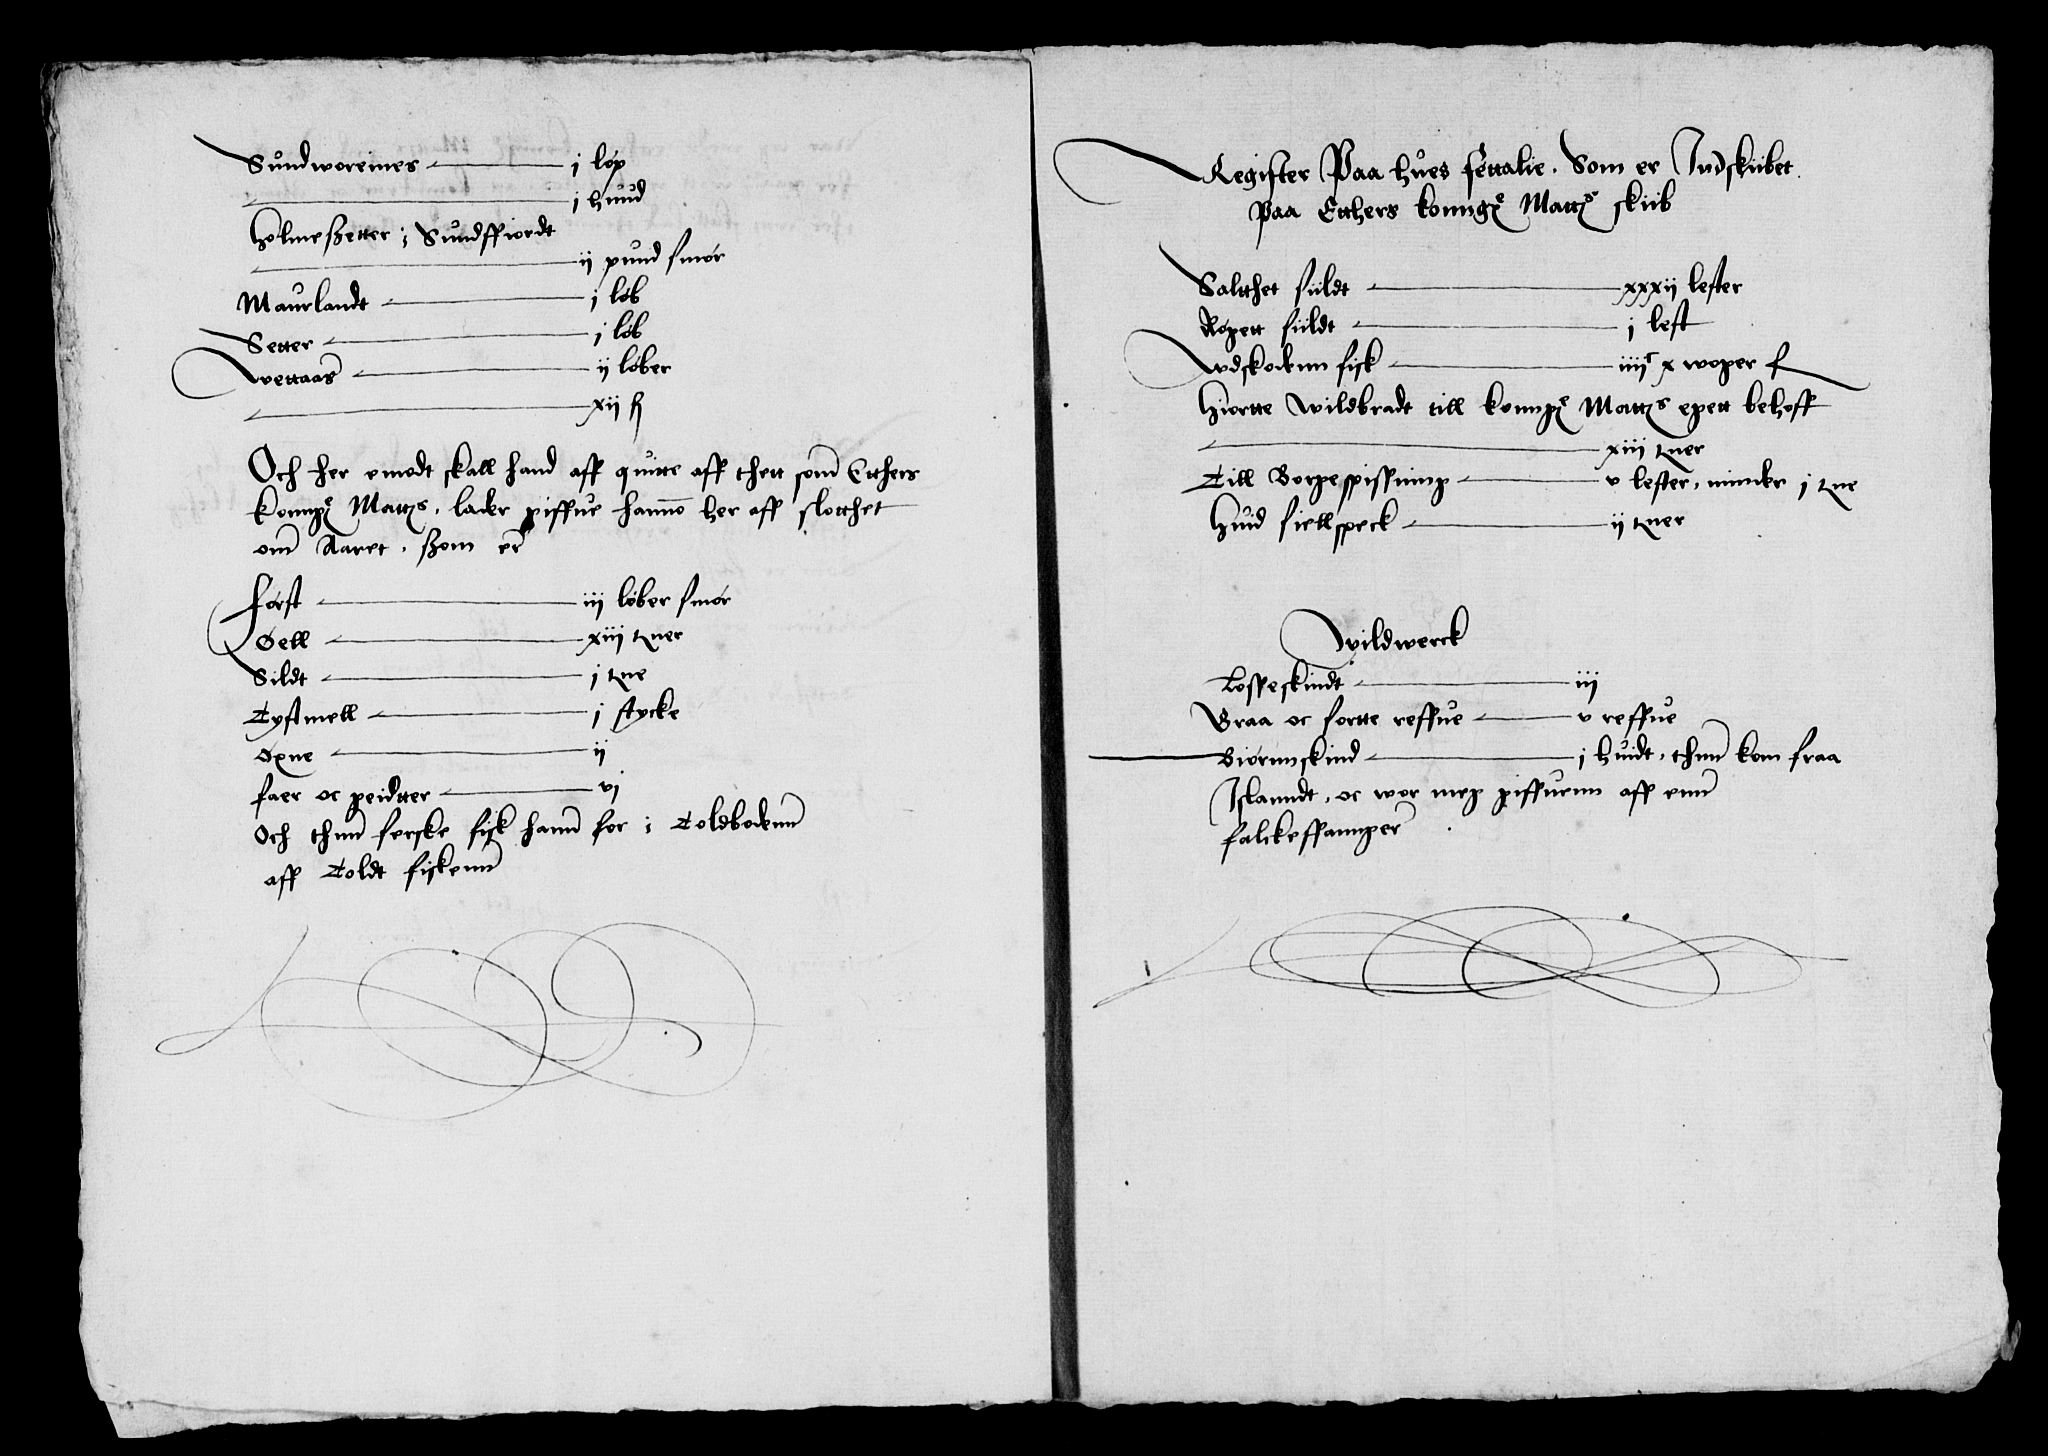 Sundworeimes j løp
j huud
Holmeßetter i Sundffiordt
ij pund smør
Maurlandt j løb
Setter j løb
Wettaas ij løber
xij ß
Och her emodt skall hand aff quitte aff thett som Etthers
konngē Mattꝫs. lader giffue hannō her aff slotthet
om Aaret. ßom er
Først iij løber smør
Øell xiij tner
Sildt j tne
Tystmell j stycke
Øxne ij
Faer oc geidtter vj
Och thnn ferske fisk hann for i Toldbodenn
aff Toldt fiskenn
Register Paa hues fettalie. Som er Indskiibet
Paa Etthers konngē Mattꝫ skiib
Saltthet siildt xxxij lester
Røgett siildt j lest
Wdskodenn fisk iiijc x woger f
Hiortte Wildbradt till konngē Mattꝫs egett behoff
xiij tner
Till Borgespissning v lester, minder j tne
Huid siellspeck ij tner
Wildwerck
Losseskindt iij
Graa oc sortte reffue v reffue
Biørnnskind j huidt, thnn kom fraa
Islanndt, oc wor meg giffuenn aff enn
falckeffannger